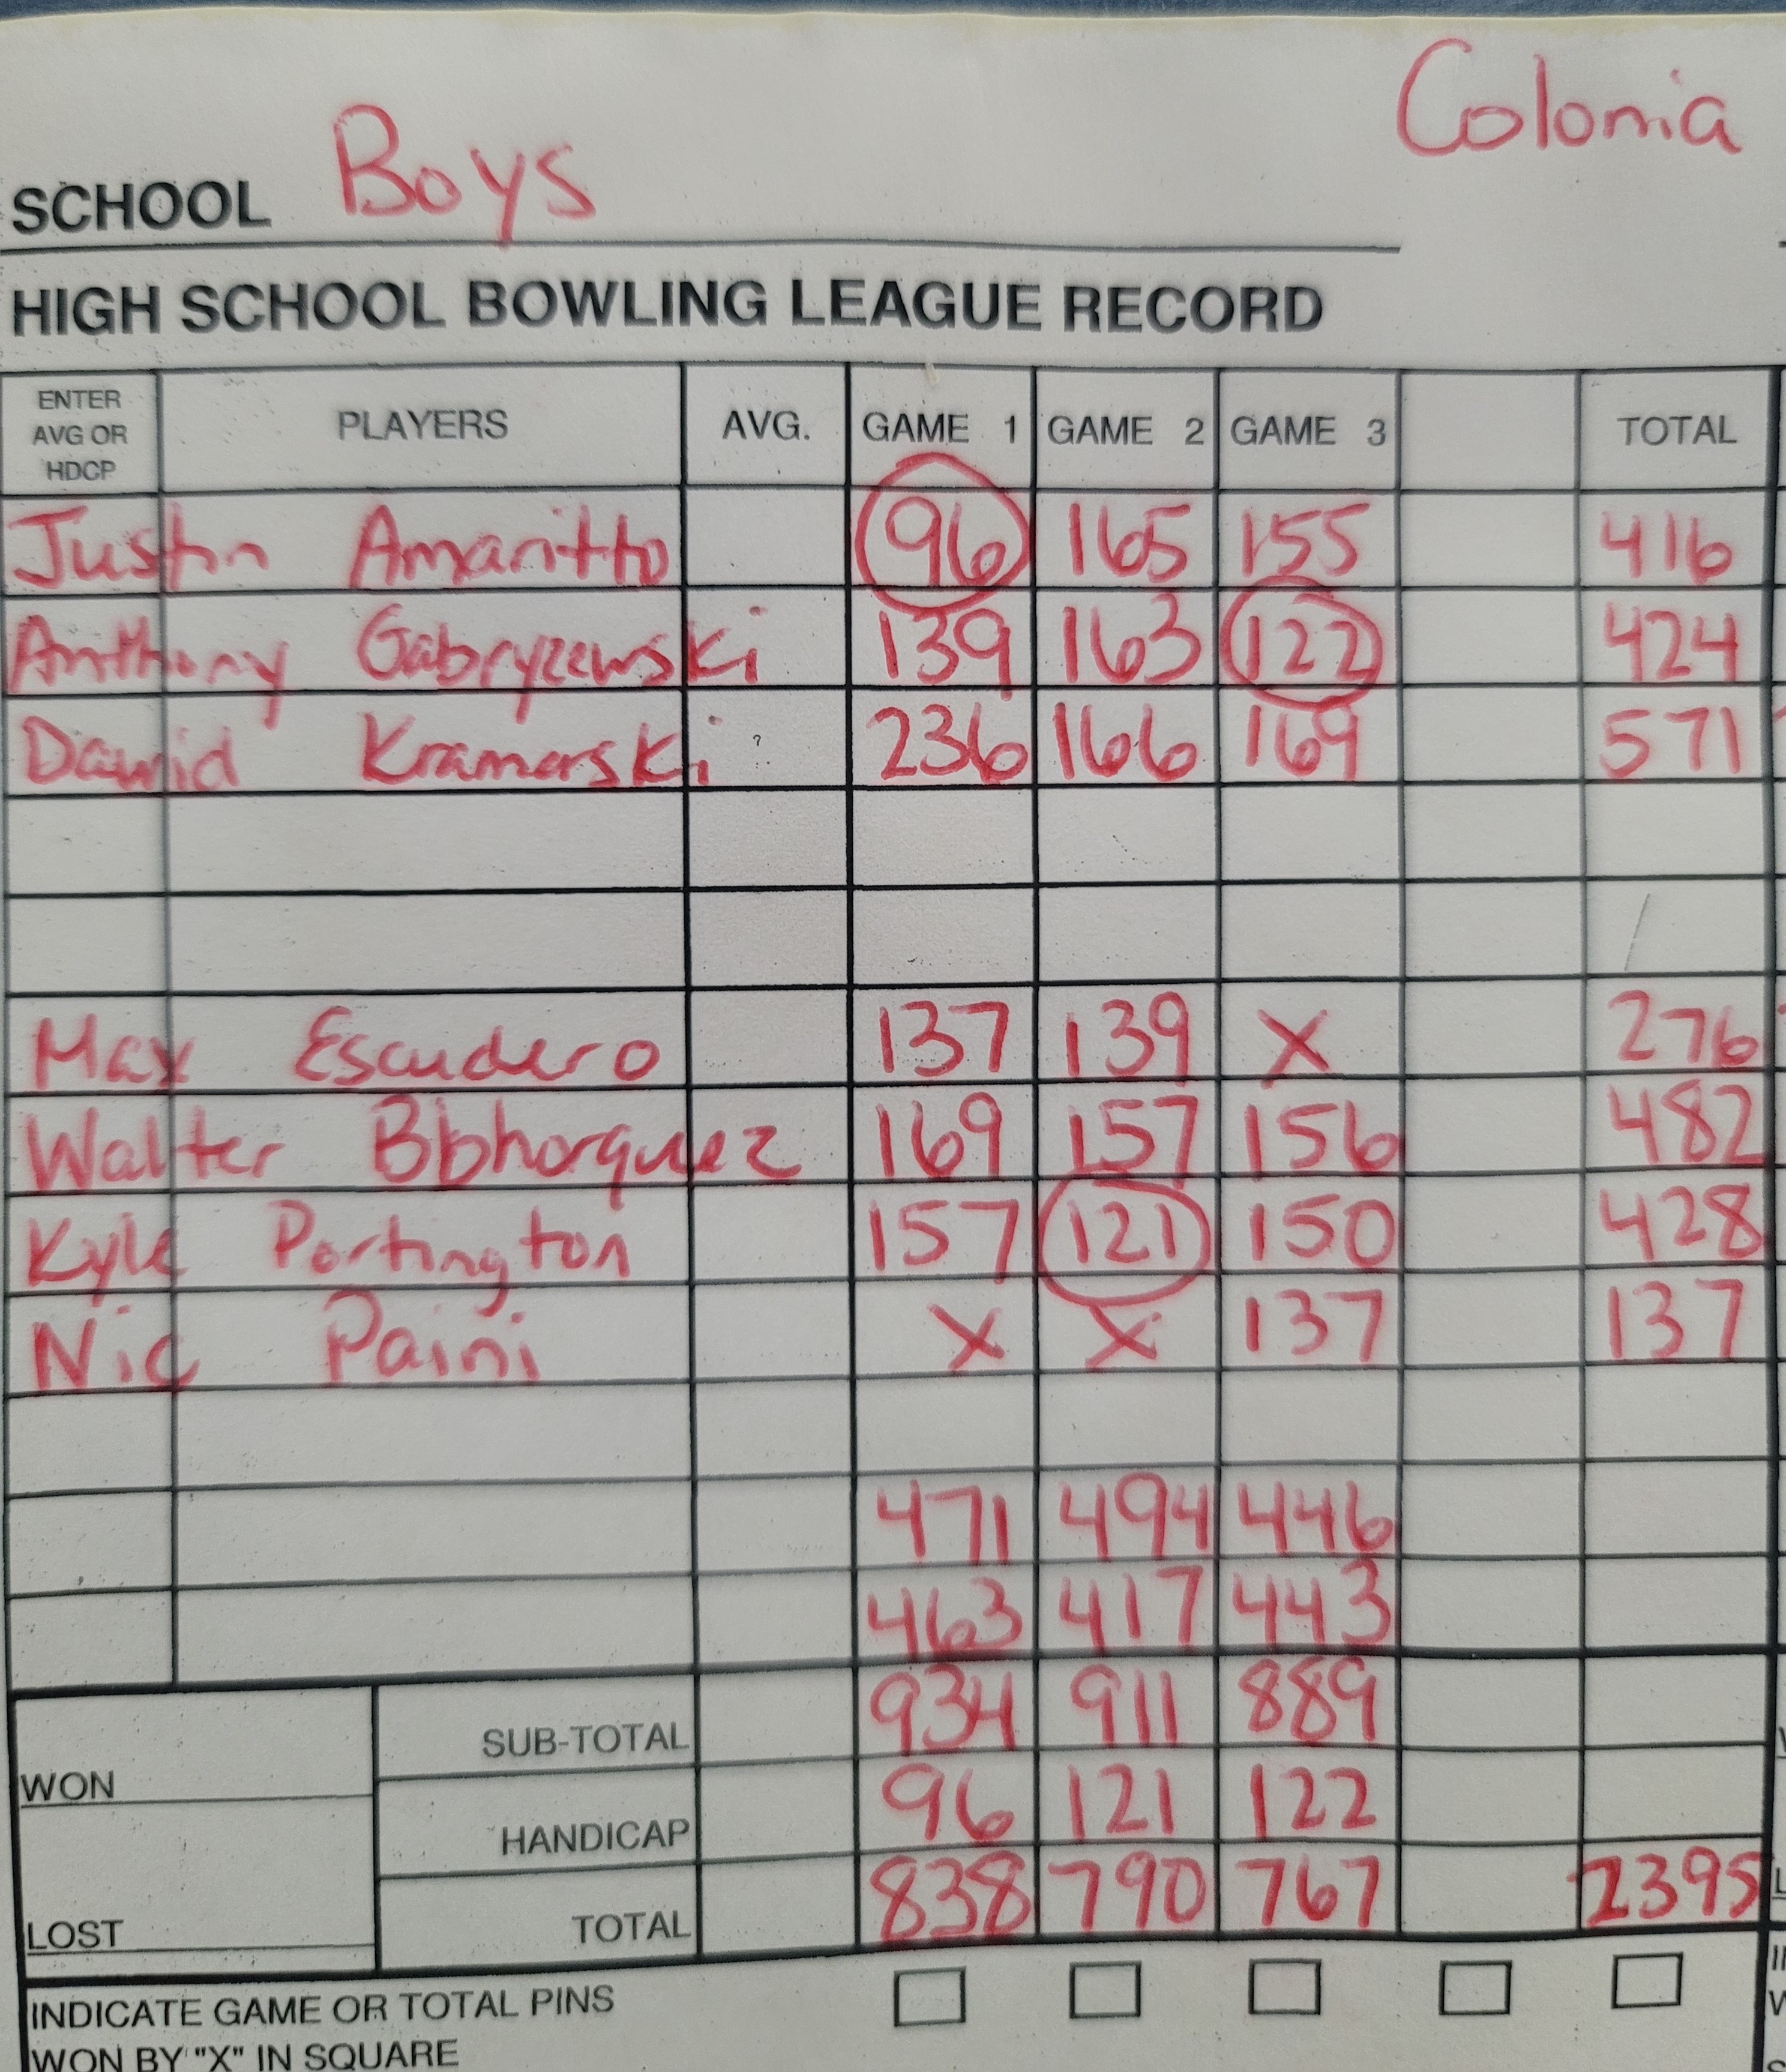 Colonia
SCHOOL Boys
HIGH SCHOOL BOWLING LEAGUE RECORD
ENTER AVG OR HDCP PLAYERS AVG. GAME 1 GAME 2 GAME 3 TOTAL
Justin Amaritto 96 165 155 416
Anthony Gabryzewski 139 163 122 424
Dawid Kramarski 236 166 169 571
Max Escudero 137 139 X 276
Walter Bbhorquez 169 157 156 482
Kyle Portington 157 121 150 428
Nic Paini X X 137 137
471 494 446
463 417 443
SUB-TOTAL 934 911 889
WON
HANDICAP 96 121 122
LOST TOTAL 838 790 767 2395
INDICATE GAME OR TOTAL PINS
WON BY "X" IN SQUARE